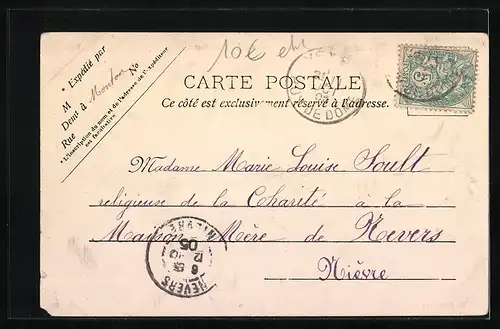 10€
* Expédié par
M
No
Demt à
Rue
* L'inscription du nom et de l'adresse de l'expéditeur
est facultative
PUY DE DOME
CARTE POSTALE
Ce côté est exclusivement réservé à l'adresse.
Madame Marie Louise Soult
religieuse de la Charité à la
Maison Mère de Nevers
Nièvre
NEVERS
NIEVRE
12
05